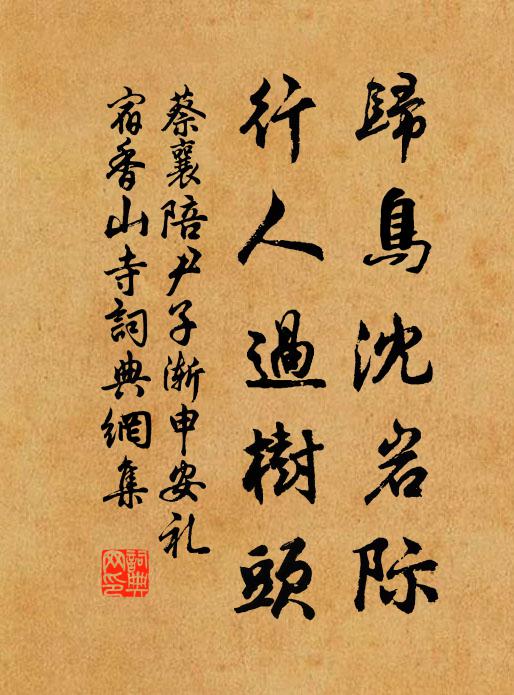 歸鳥沈岩际
行人過樹頭
蔡襄陪尹子渐申安礼
宿香山寺詞典網集
詞典网印